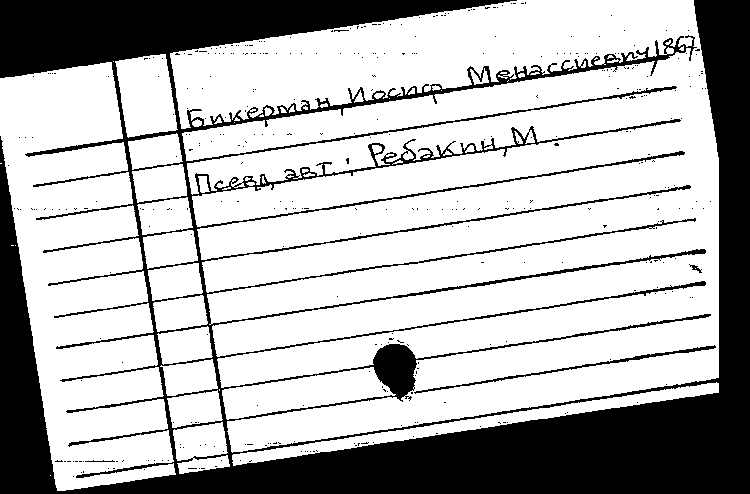 Бикерман, Иосиф Менассиевич, 1867
Псевд. авт.: Ребакин, М.